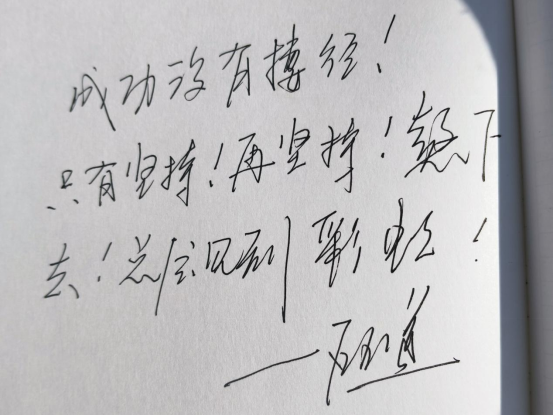 成功没有捷径！
只有坚持！再坚持！熬下
去！总会见到彩虹！